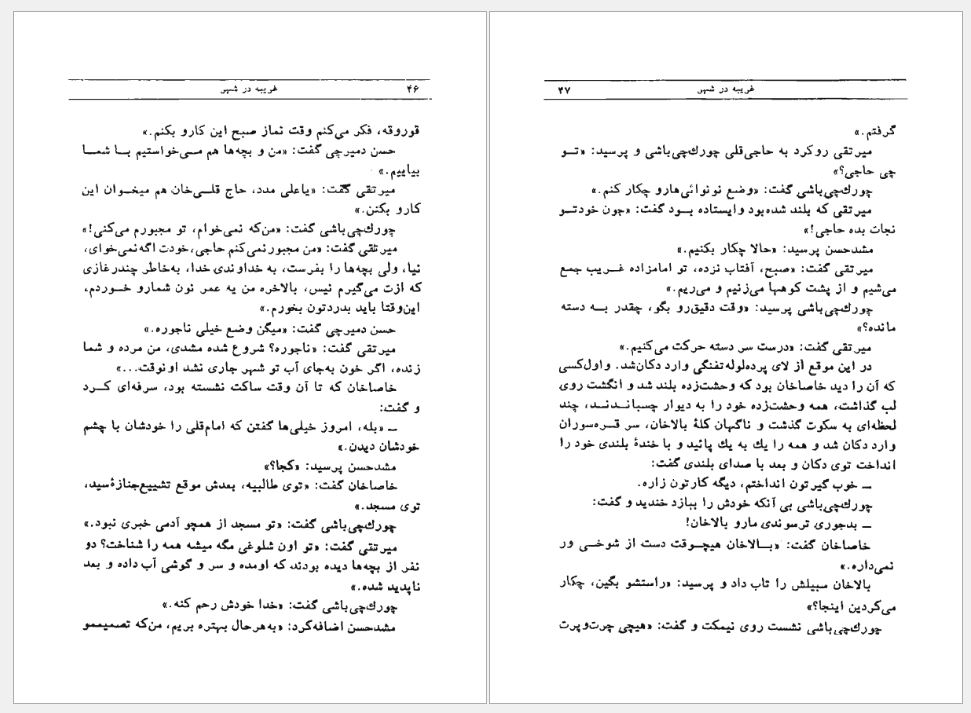 ۴۶ غریبه در شهر
قوروقه، فکر می‌کنم وقت نماز صبح این کارو بکنم.»
حسن دمیرچی گفت: «من و بچه‌ها هم مـی‌خواستیم بـا شمـا
بیاییم.»
میرتقی گفت: «یاعلی مدد، حاج قلـی‌خان هم میخـوان این
کارو بکنن.»
چورك‌چی‌باشی گفت: «من‌که نمی‌خوام، تو مجبورم می‌کنی!»
میرتقی گفت: «من مجبور نمی‌کنم حاجی، خودت اگه نمی‌خوای،
نیا، ولی بچه‌ها را بفرست، به خداوندی خدا، به‌خاطر چندرغازی
که ازت می‌گیرم نیس، بالاخره من یه عمر نون شمارو خـوردم،
این‌وقتا باید بدردتون بخورم.»
حسن دمیرچی گفت: «میگن وضع خیلی ناجوره.»
میرتقی گفت: «ناجوره؟ شروع شده مشدی، من مرده و شما
زنده، اگر خون به‌جای آب تو شهر جاری نشد اونوقت...»
خاصاخان که تا آن وقت ساکت نشسته بود، سرفه‌ای کـرد
و گفت:
ـ «بله، امروز خیلی‌ها گفتن که امام‌قلی را خودشان با چشم
خودشان دیدن.»
مشدحسن پرسید: «کجا؟»
خاصاخان گفت: «توی طالبیه، بعدش موقع تشییع‌جنازهٔ‌سید،
توی مسجد.»
چورك‌چی‌باشی گفت: «تو مسجد از همچو آدمی خبری نبود.»
میرتقی گفت: «تو اون شلوغی مگه میشه همه را شناخت؟ دو
نفر از بچه‌ها دیده بودند که اومده و سر و گوشی آب داده و بعد
ناپدید شده.»
چورك‌چی‌باشی گفت: «خدا خودش رحم کنه.»
مشدحسن اضافه‌کرد: «به‌هرحال بهتره بریم، من‌که تصمیممو
غریبه در شهر ۴۷
گرفتم.»
میرتقی روکرد به حاجی‌قلی چورك‌چی‌باشی و پرسید: «تـو
چی حاجی؟»
چورك‌چی‌باشی گفت: «وضع نونوائی‌هارو چکار کنم.»
میرتقی که بلند شده‌بود وایستاده بـود گفت: «جون خودتـو
نجات بده حاجی!»
مشدحسن پرسید: «حالا چکار بکنیم.»
میرتقی گفت: «صبح، آفتاب نزده، تو امامزاده غـریب جمع
می‌شیم و از پشت کوهها می‌زنیم و می‌ریم.»
چورك‌چی‌باشی پرسید: «وقت دقیق‌رو بگو، چقدر بـه دسته
مانده؟»
میرتقی گفت: «درست سر دسته حرکت می‌کنیم.»
در این موقع از لای پرده‌لوله‌تفنگی وارد دکان‌شد. و‌اول‌کسی
که آن را دید خاصاخان بود که وحشت‌زده بلند شد و انگشت روی
لب گذاشت، همه وحشت‌زده خود را به دیوار چسبانـدنـد، چند
لحظه‌ای به سکوت گذشت و ناگهان کلهٔ بالاخان، سر قـره‌سوران
وارد دکان شد و همه را یك به یك پائید و با خندهٔ بلندی خود را
انداخت توی دکان و بعد با صدای بلندی گفت:
ـ خوب گیرتون انداختم، دیگه کارتون زاره.
چورك‌چی‌باشی بی آنکه خودش را ببازد خندید و گفت:
ـ بدجوری ترسوندی مارو بالاخان!
خاصاخان گفت: «بـالاخان هیچـوقت دست از شوخـی ور
نمی‌داره.»
بالاخان سبیلش را تاب داد و پرسید: «راستشو بگین، چکار
می‌کردین اینجا؟»
چورك‌چی‌باشی نشست روی نیمکت و گفت: «هیچی چرت‌وپرت